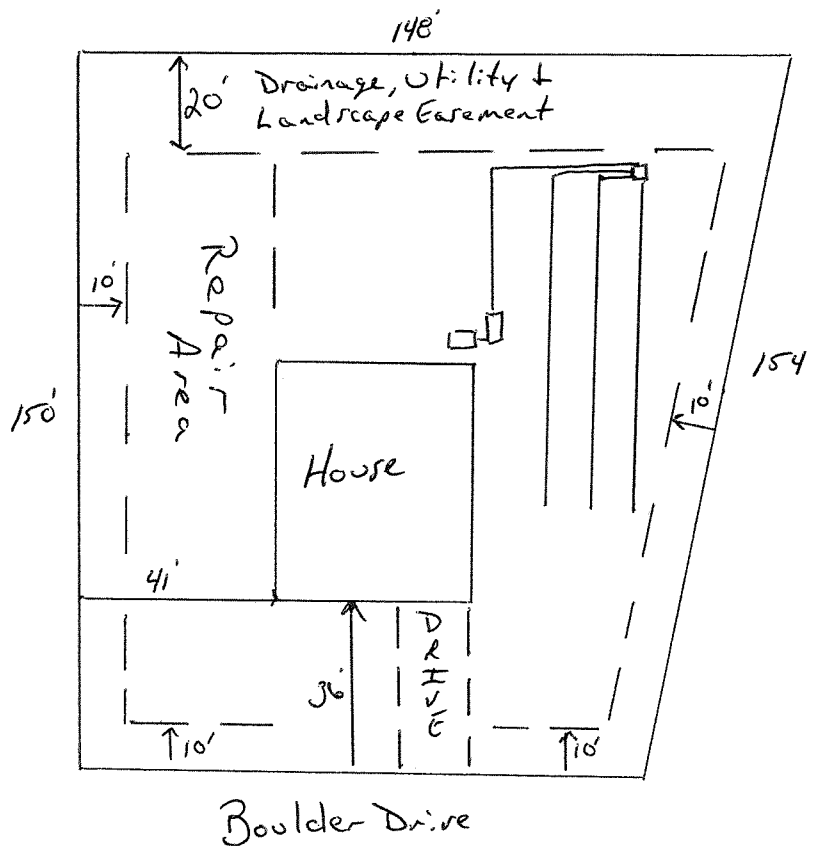 148'
20'
Drainage, Utility +
Landscape Easement
Repair
Area
10'
150'
154
10'
House
41'
36'
DRIVE
10'
10'
Boulder Drive